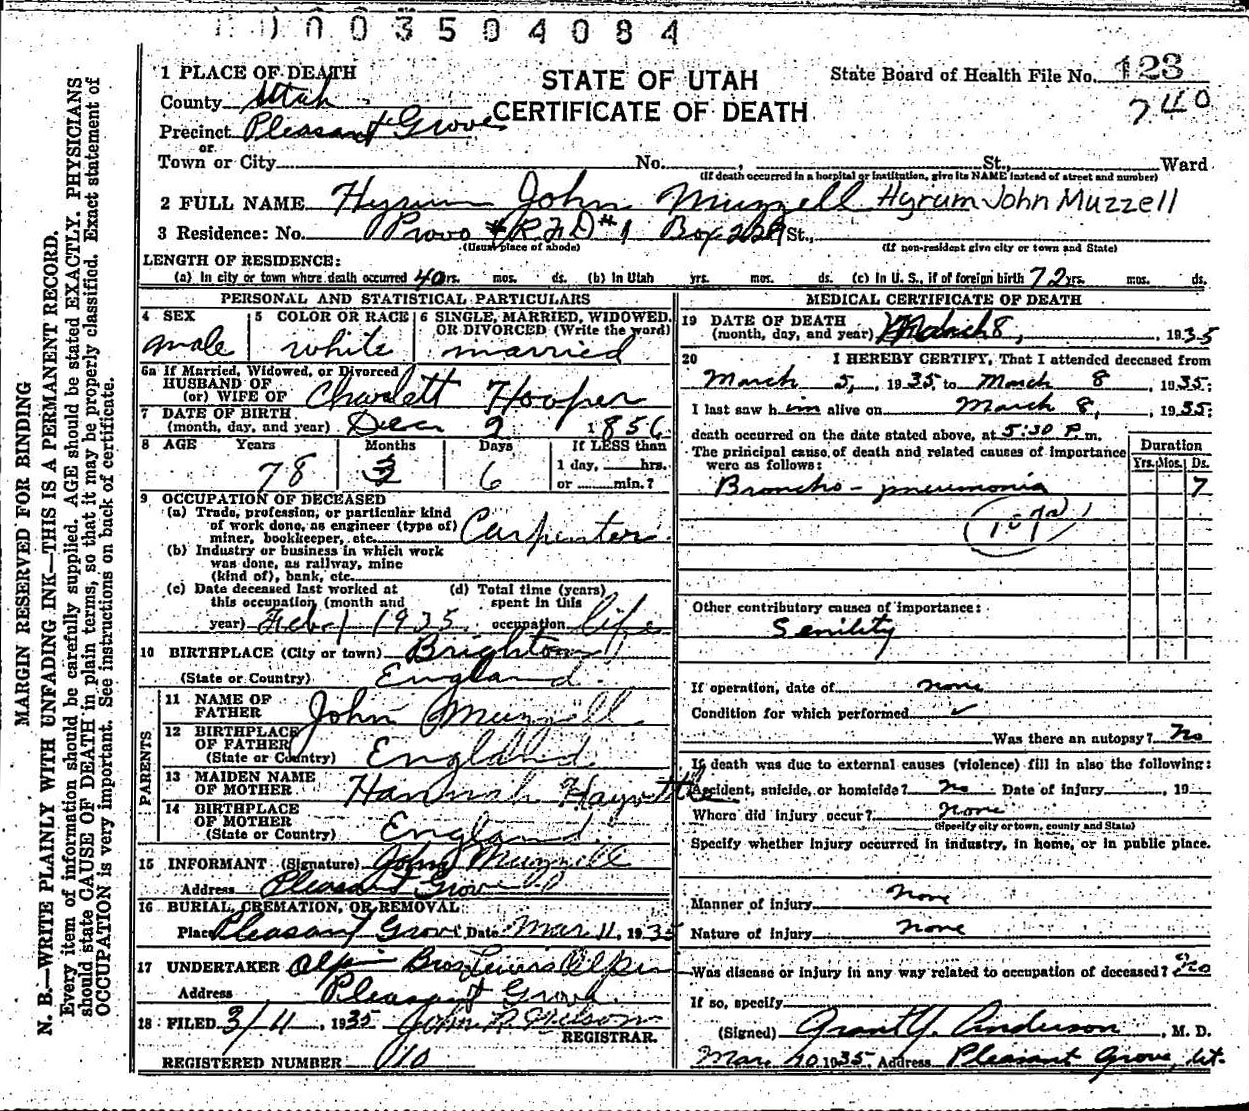 1003504084
1 PLACE OF DEATH
County Utah
Precinct Pleasant Grove
or
Town or City No. , St., Ward
(If death occurred in a hospital or institution, give its NAME instead of street and number)
STATE OF UTAH
CERTIFICATE OF DEATH
State Board of Health File No. 123
740
2 FULL NAME Hyrum John Muzzell Hyrum John Muzzell
3 Residence: No. Provo RFD #1 Box 228 St.,
(Usual place of abode) (If non-resident give city or town and State)
LENGTH OF RESIDENCE:
(a) In city or town where death occurred 40 yrs. mos. ds. (b) In Utah yrs. mos. ds. (c) In U. S., if of foreign birth 72 yrs. mos. ds.
PERSONAL AND STATISTICAL PARTICULARS
4 SEX
male
5 COLOR OR RACE
white
6 SINGLE, MARRIED, WIDOWED, OR DIVORCED (Write the word)
married
6a If Married, Widowed, or Divorced
HUSBAND OF
(or) WIFE OF Charlett Hooper
7 DATE OF BIRTH
(month, day, and year) Dec 2 1856
8 AGE Years Months Days If LESS than
78 3 6 1 day, hrs.
or min.?
9 OCCUPATION OF DECEASED
(a) Trade, profession, or particular kind
of work done, as engineer (type of)
miner, bookkeeper, etc. Carpenter
(b) Industry or business in which work
was done, as railway, mine
(kind of), bank, etc.
(c) Date deceased last worked at
this occupation (month and
year) Feb 1 1935
(d) Total time (years)
spent in this
occupation life
10 BIRTHPLACE (City or town) Brighton
(State or Country) England
PARENTS
11 NAME OF
FATHER John Muzzell
12 BIRTHPLACE
OF FATHER
(State or Country) England
13 MAIDEN NAME
OF MOTHER Hannah
14 BIRTHPLACE
OF MOTHER
(State or Country) England
15 INFORMANT (Signature) John Muzzell
Address Pleasant Grove
16 BURIAL, CREMATION, OR REMOVAL
Place Pleasant Grove Date Mar 11, 1935
17 UNDERTAKER Olpin Bros
Address Pleasant Grove
18 FILED 3/11, 1935
REGISTRAR.
REGISTERED NUMBER
MEDICAL CERTIFICATE OF DEATH
19 DATE OF DEATH
(month, day, and year) March 8, 1935
20 I HEREBY CERTIFY, That I attended deceased from
March 5, 1935, to March 8, 1935;
I last saw him alive on March 8, 1935;
death occurred on the date stated above, at 5:30 P. m.
The principal cause of death and related causes of importance
were as follows:
Duration
Yrs. Mos. Ds.
Broncho-pneumonia 7
Other contributory causes of importance:
Senility
If operation, date of none
Condition for which performed
Was there an autopsy? No
If death was due to external causes (violence) fill in also the following:
Accident, suicide, or homicide? no Date of injury , 19
Where did injury occur? None
(Specify city or town, county and State)
Specify whether injury occurred in industry, in home, or in public place.
Manner of injury None
Nature of injury None
Was disease or injury in any way related to occupation of deceased? No
If so, specify
(Signed) Grant Y. Anderson, M. D.
Mar 10 1935, Address Pleasant Grove, Ut.
MARGIN RESERVED FOR BINDING
N. B.—WRITE PLAINLY WITH UNFADING INK—THIS IS A PERMANENT RECORD.
Every item of information should be carefully supplied. AGE should be stated EXACTLY. PHYSICIANS
should state CAUSE OF DEATH in plain terms, so that it may be properly classified. Exact statement of
OCCUPATION is very important. See instructions on back of certificate.